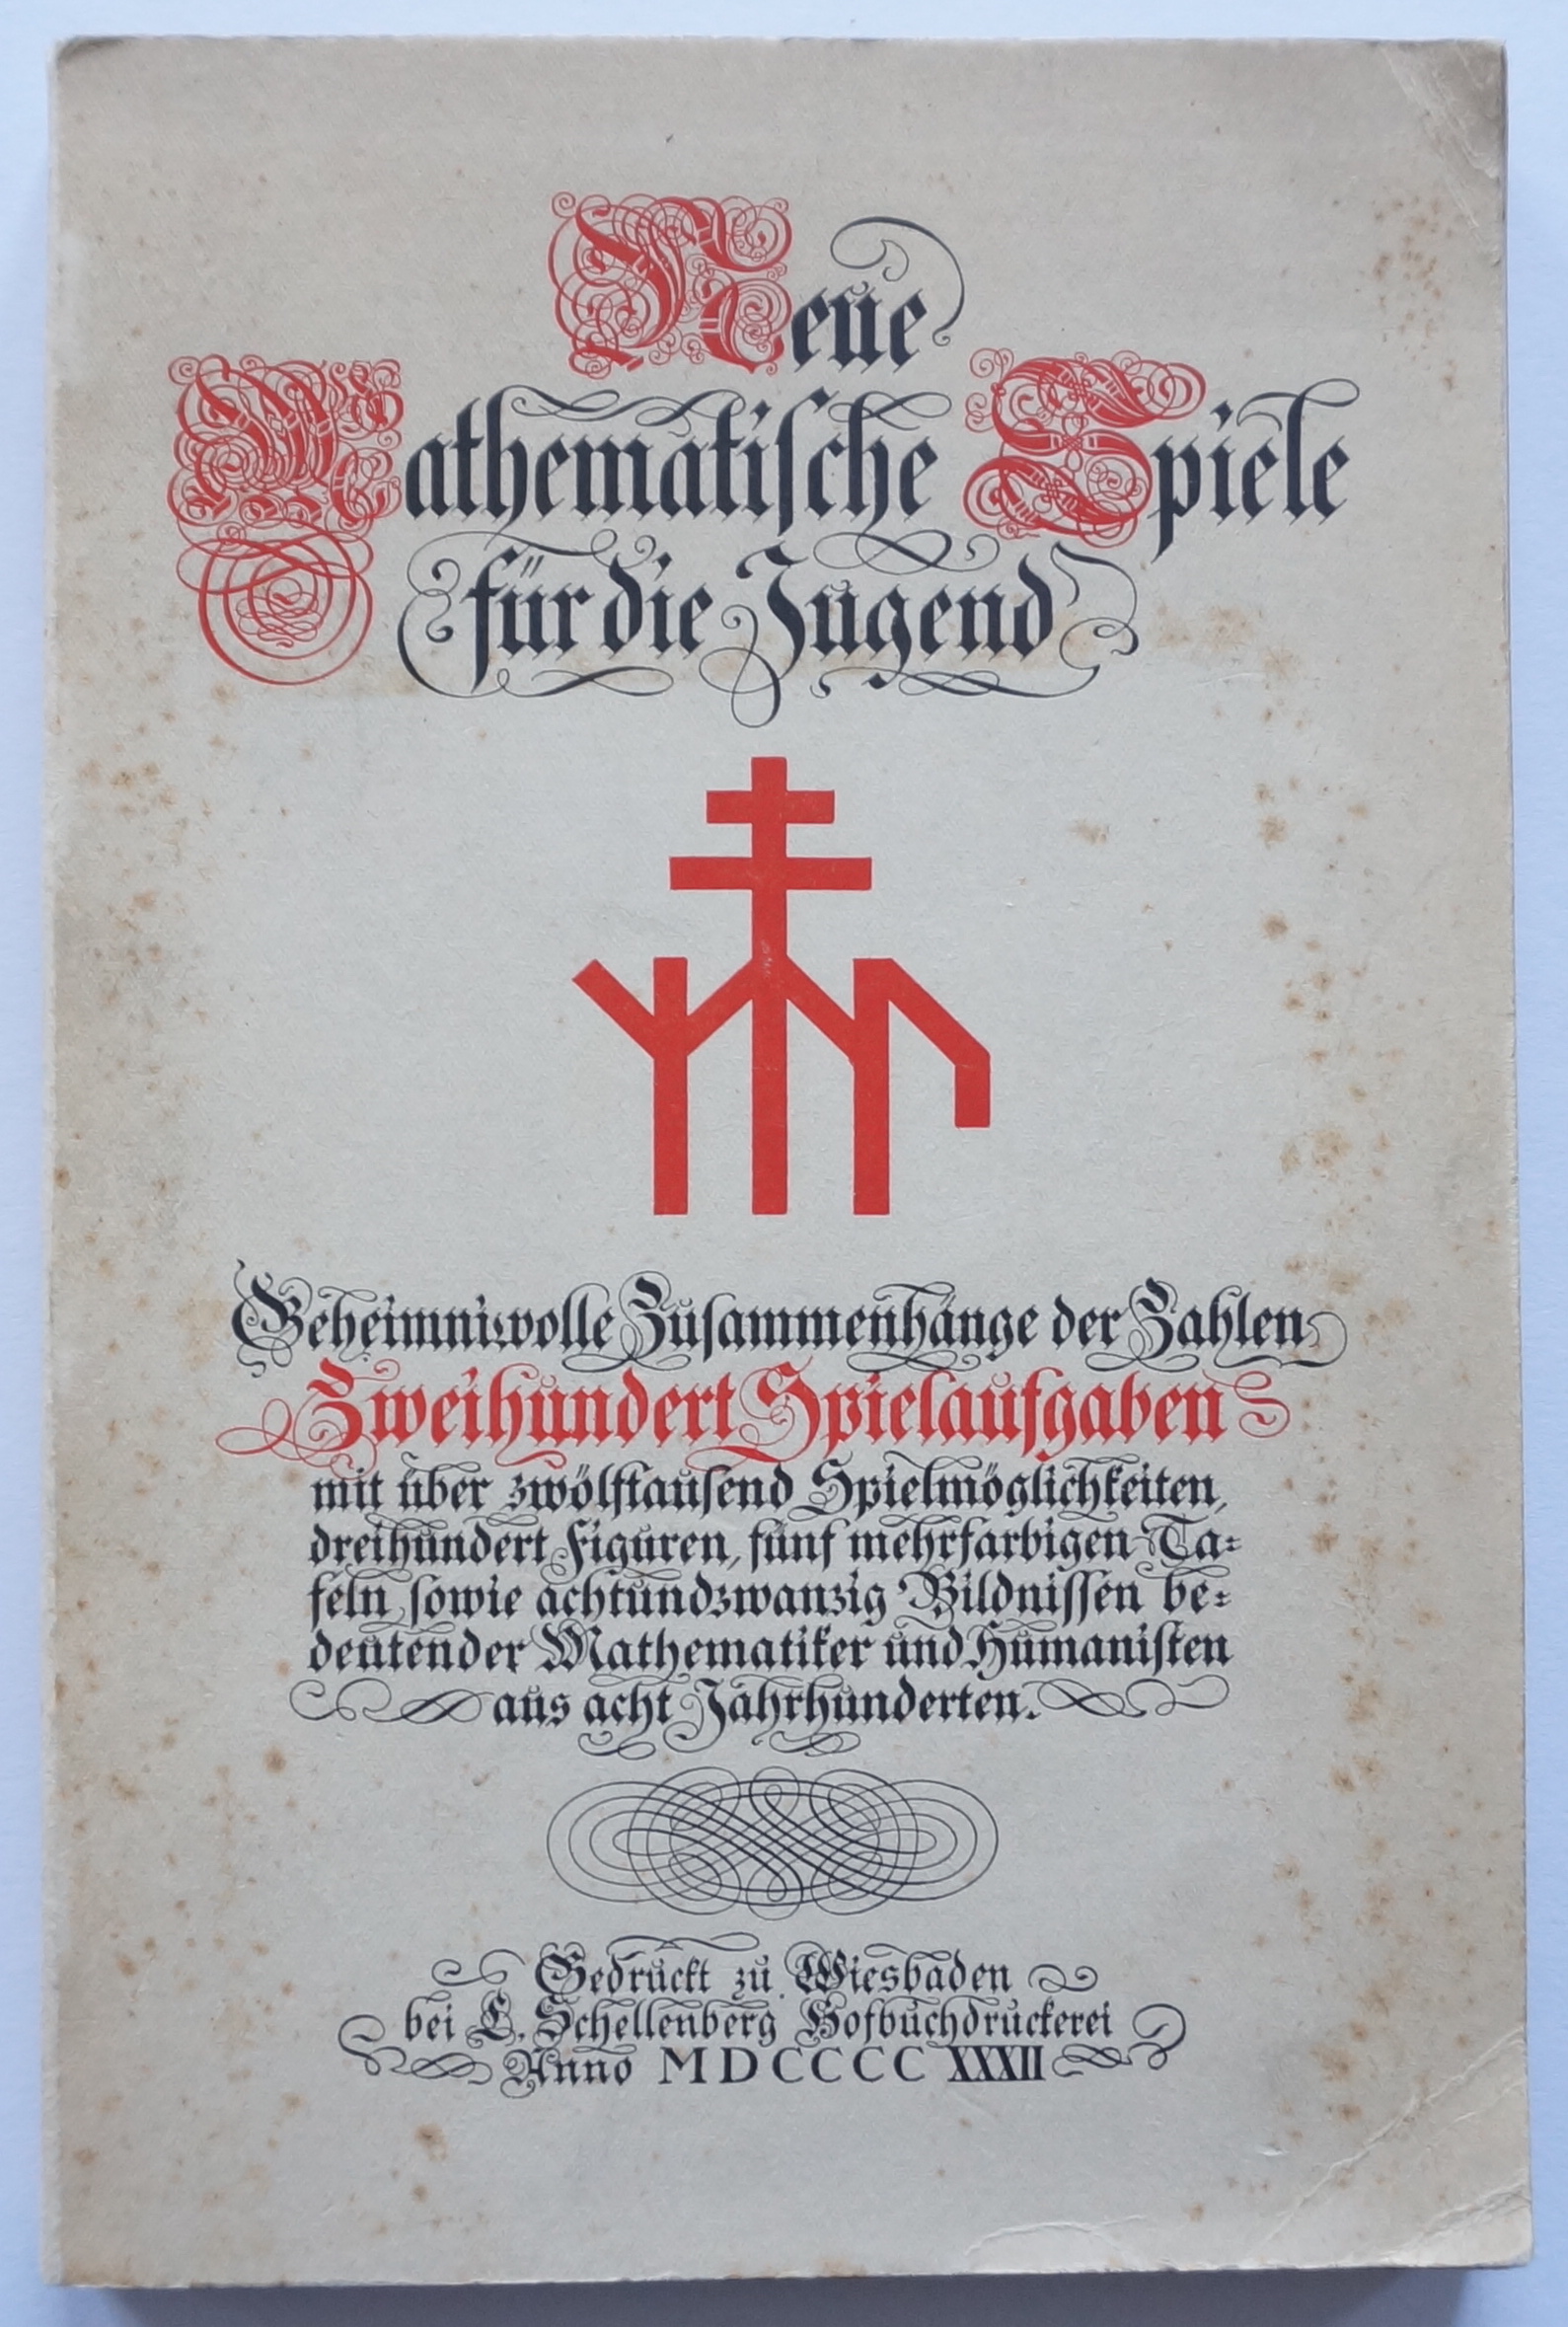 Neue
Mathematische Spiele
für die Jugend
Geheimnisvolle Zusammenhänge der Zahlen
Zweihundert Spielaufgaben
mit über zwölftausend Spielmöglichkeiten,
dreihundert Figuren, fünf mehrfarbigen Ta-
feln sowie achtundzwanzig Bildnissen be-
deutender Mathematiker und Humanisten
aus acht Jahrhunderten.
Gedruckt zu Wiesbaden
bei L. Schellenberg Hofbuchdruckerei
Anno MDCCCC XXXII